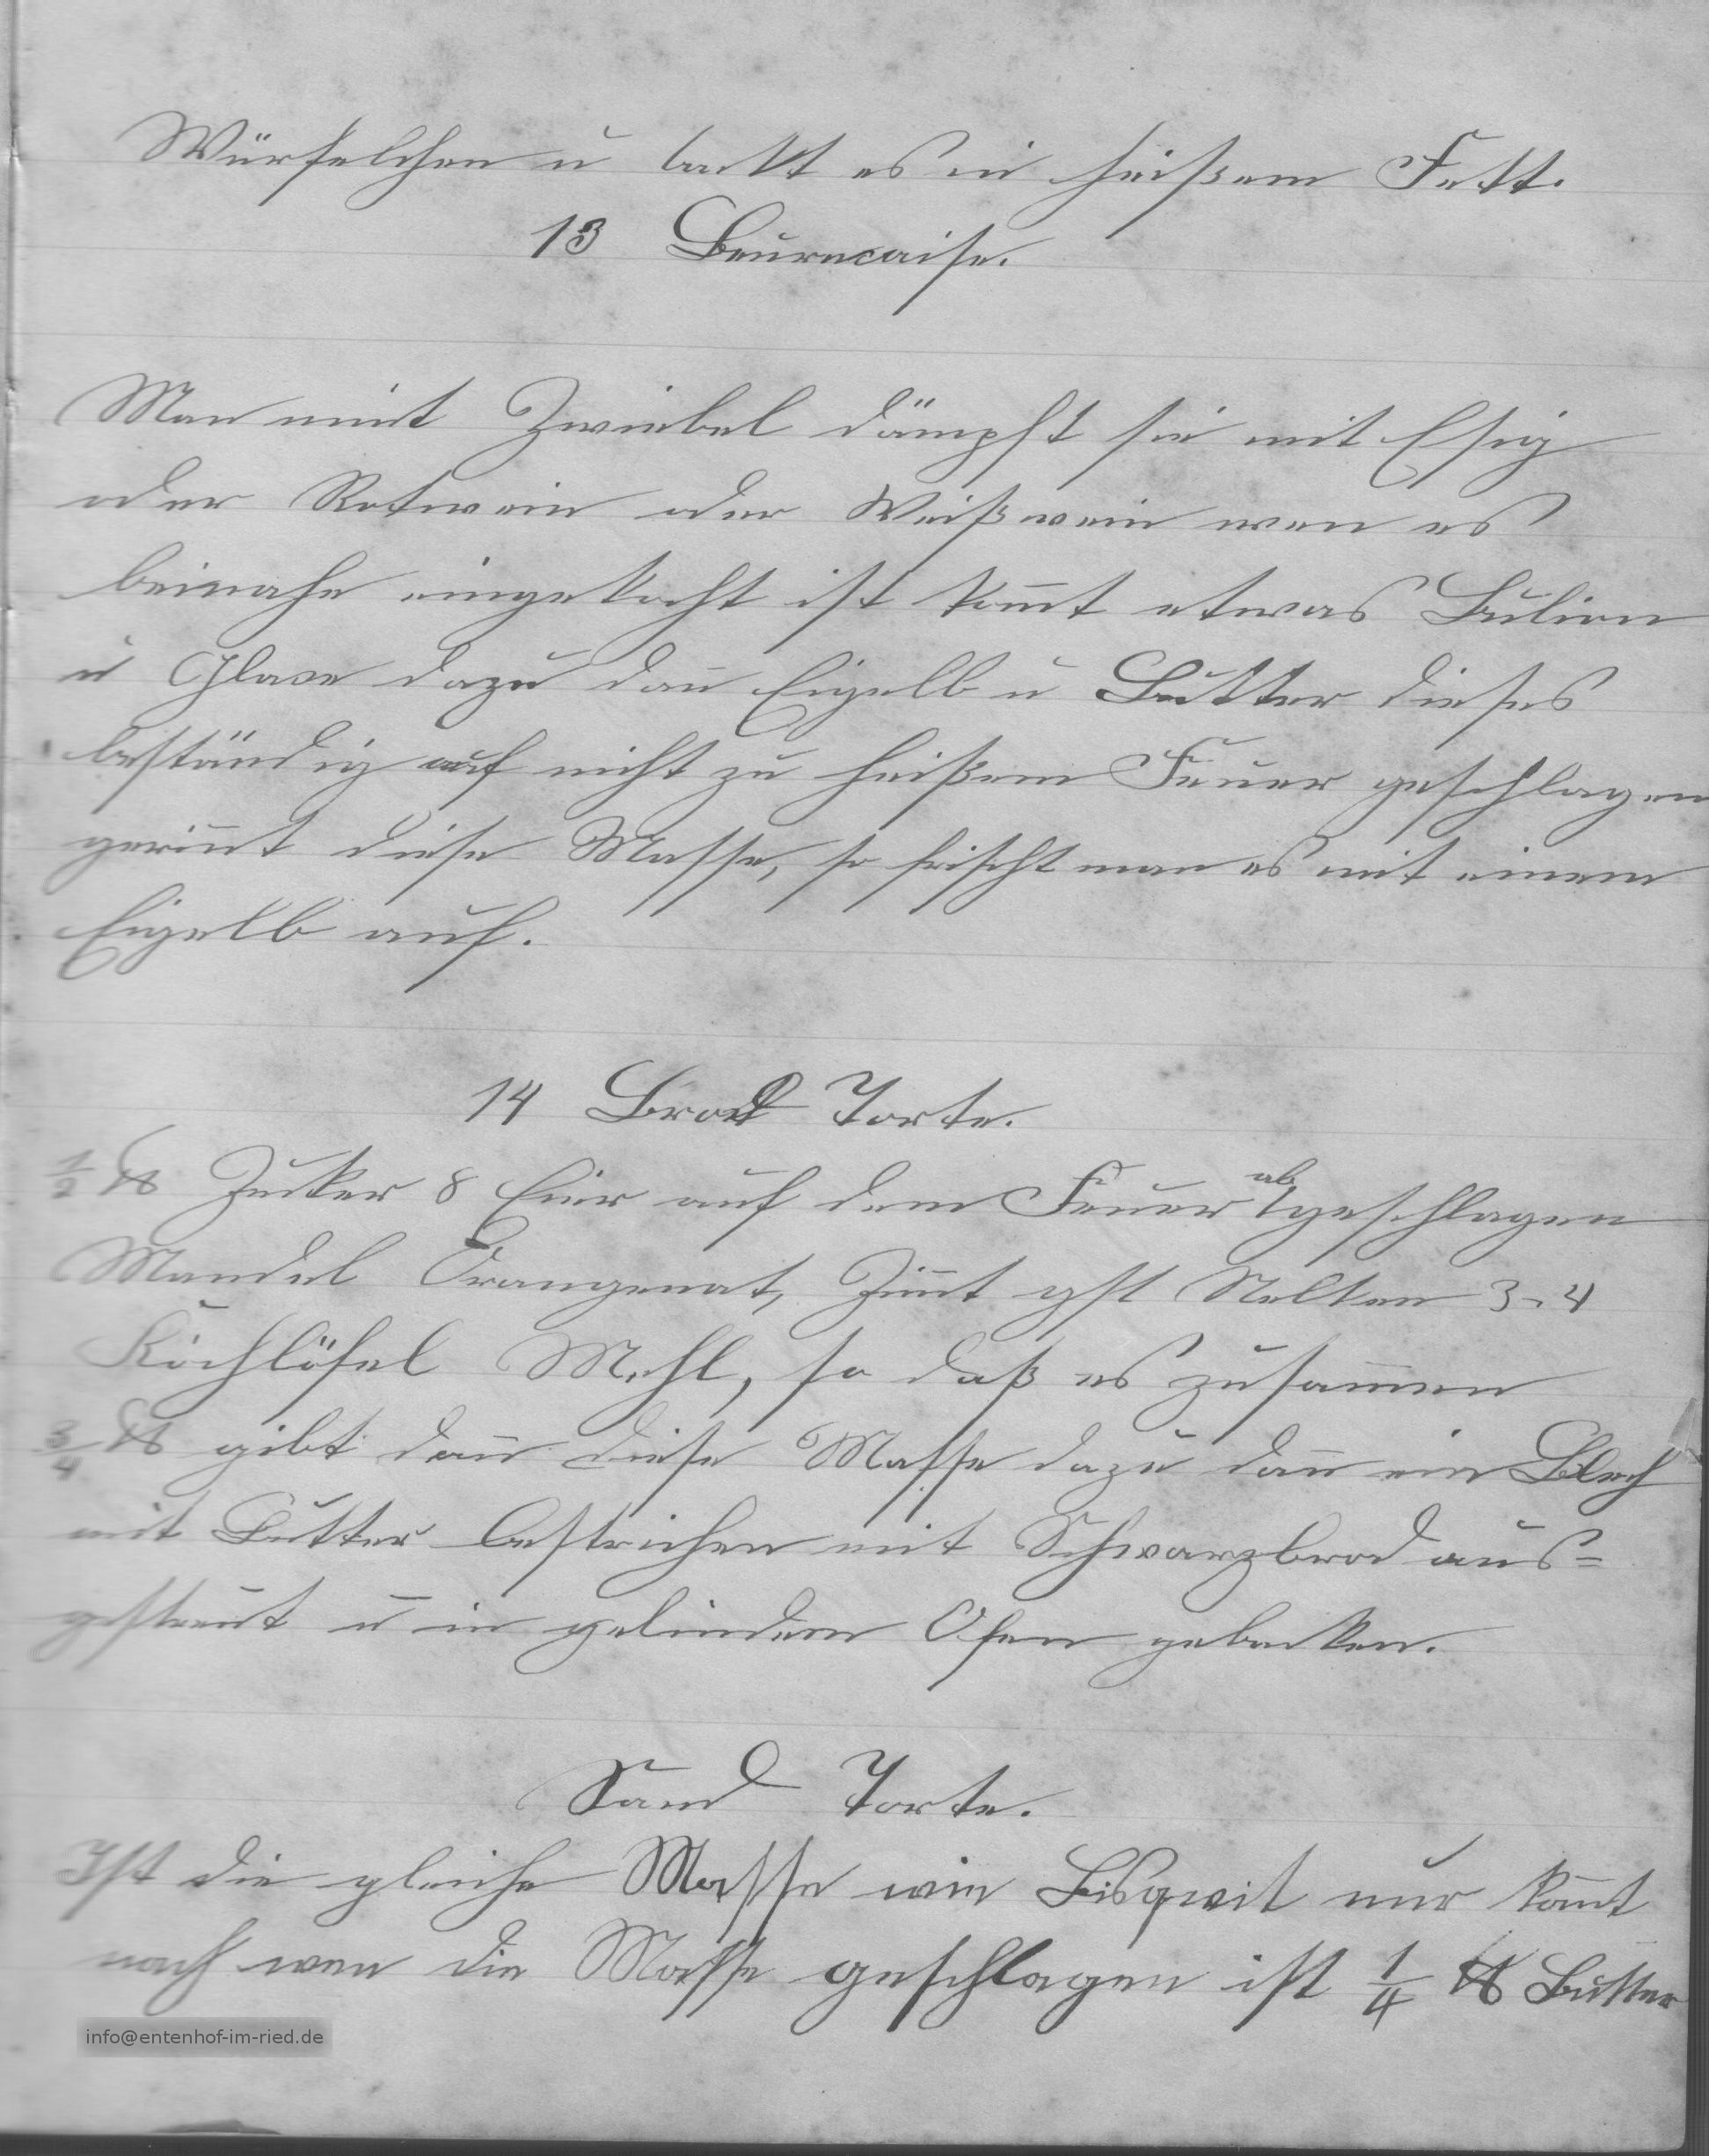 Würfelchen u backt es in heißem Fett.
13 Beurnaise.
Man nimt Zwiebel dämpft sie mit Esig
oder Rotwein oder Weißwein wen es
beinahe eingekocht ist kom̄t etwas Bulion
u Glace dazu dan̄ Eigelb u Butter dieses
beständig auf nicht zu heißem Feuer geschlagen
gerin̄t diese Masse, so frischt man es mit einem
Eigelb auf.
14 Brod Torte.
1/2 ℔ Zucker 8 Eier auf dem Feuer abgeschlagen
Mandel Orangenat, Zim̄t gst Nelken 3-4
Kochlöfel Mehl, so daß es zusam̄en
3/4 ℔ gibt dan̄ diese Masse dazu dan̄ ein Blech
mit Butter bestrichen mit Schwarzbrod aus=
gestreut u in gelindem Ofen gebacken.
Sand Torte.
Ist die gleiche Masse wie Bisqwit nur kom̄t
noch wen die Masse geschlagen ist 1/4 ℔ Butter
info@entenhof-im-ried.de